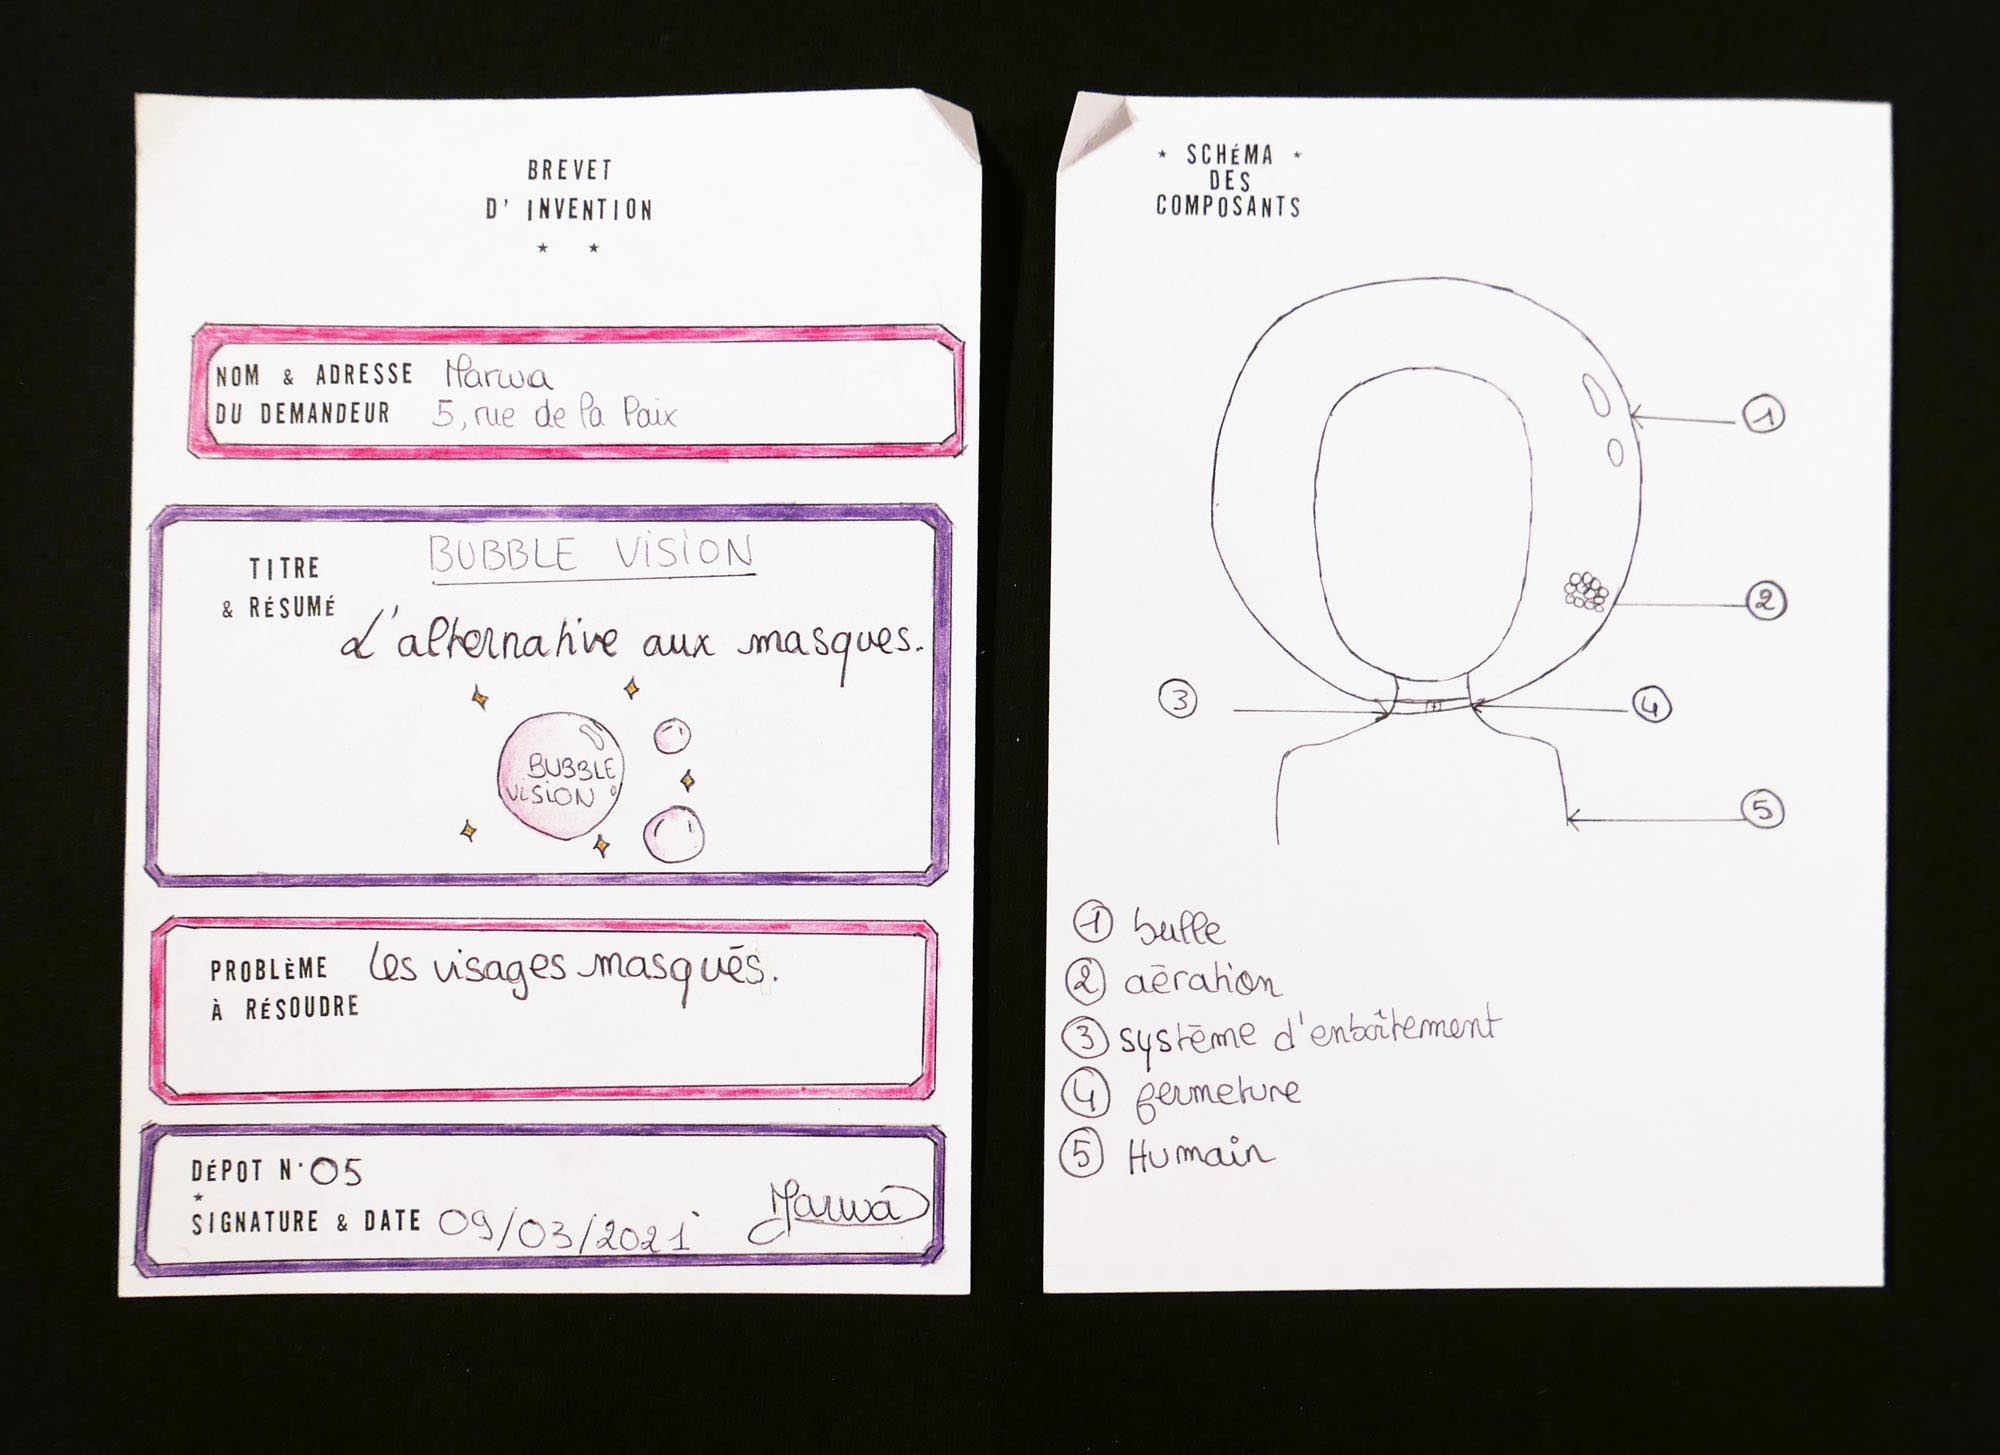 BREVET
D' INVENTION
NOM & ADRESSE Marwa
DU DEMANDEUR 5, rue de la Paix
BUBBLE VISION
TITRE
& RÉSUMÉ
L'alternative aux masques.
BUBBLE
VISION
PROBLÈME Les visages masqués.
À RÉSOUDRE
DÉPOT N° 05
SIGNATURE & DATE 09/03/2021 Marwa
SCHÉMA
DES
COMPOSANTS
1
2
3
4
5
1 bulle
2 aération
3 système d'enboîtement
4 fermeture
5 Humain